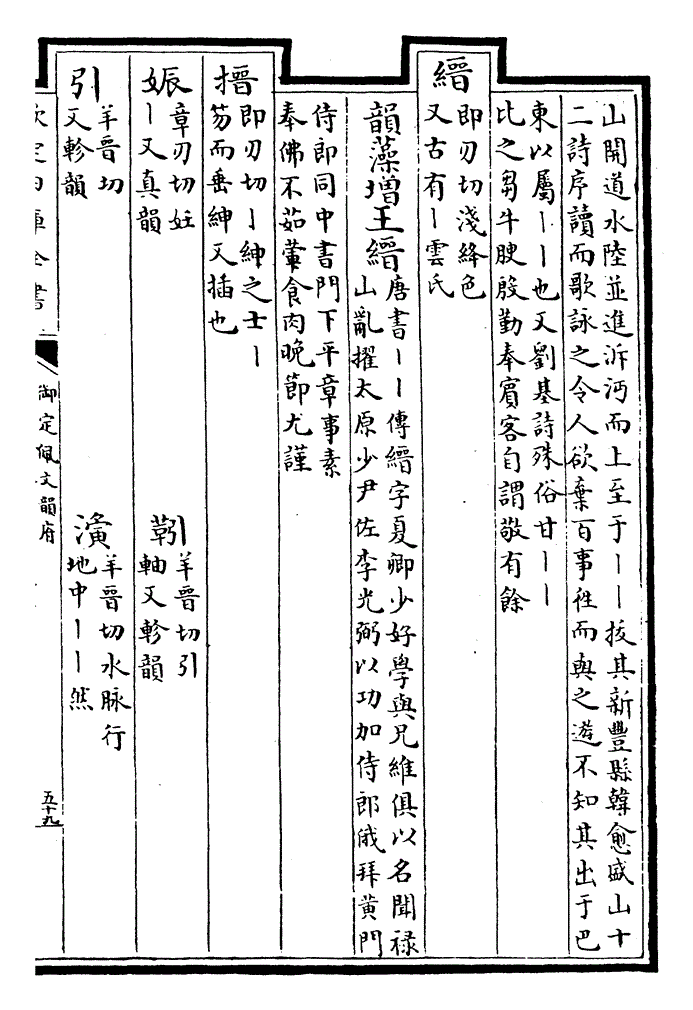 山開道水陸並進泝沔而上至于丨丨拔其新豐縣韓愈盛山十
二詩序讀而歌詠之令人欲棄百事徃而與之遊不知其出于巴
東以屬丨丨也又劉基詩殊俗甘丨丨
比之芻牛腴殷勤奉賓客自謂敬有餘
縉
即刃切淺絳色
又古有丨雲氏
韻藻增王縉
唐書丨丨傳縉字夏卿少好學與兄維俱以名聞禄
山亂擢太原少尹佐李光弼以功加侍郎俄拜黄門
侍郎同中書門下平章事素
奉佛不茹葷食肉晚節尤謹
搢
即刃切丨紳之士丨
笏而垂紳又插也
娠
章刃切妊
丨又真韻
靷
羊晉切引
軸又軫韻
引
羊晉切
又軫韻
濥
羊晉切水脉行
地中丨丨然
欽定四庫全書
御定佩文韻府
五十九